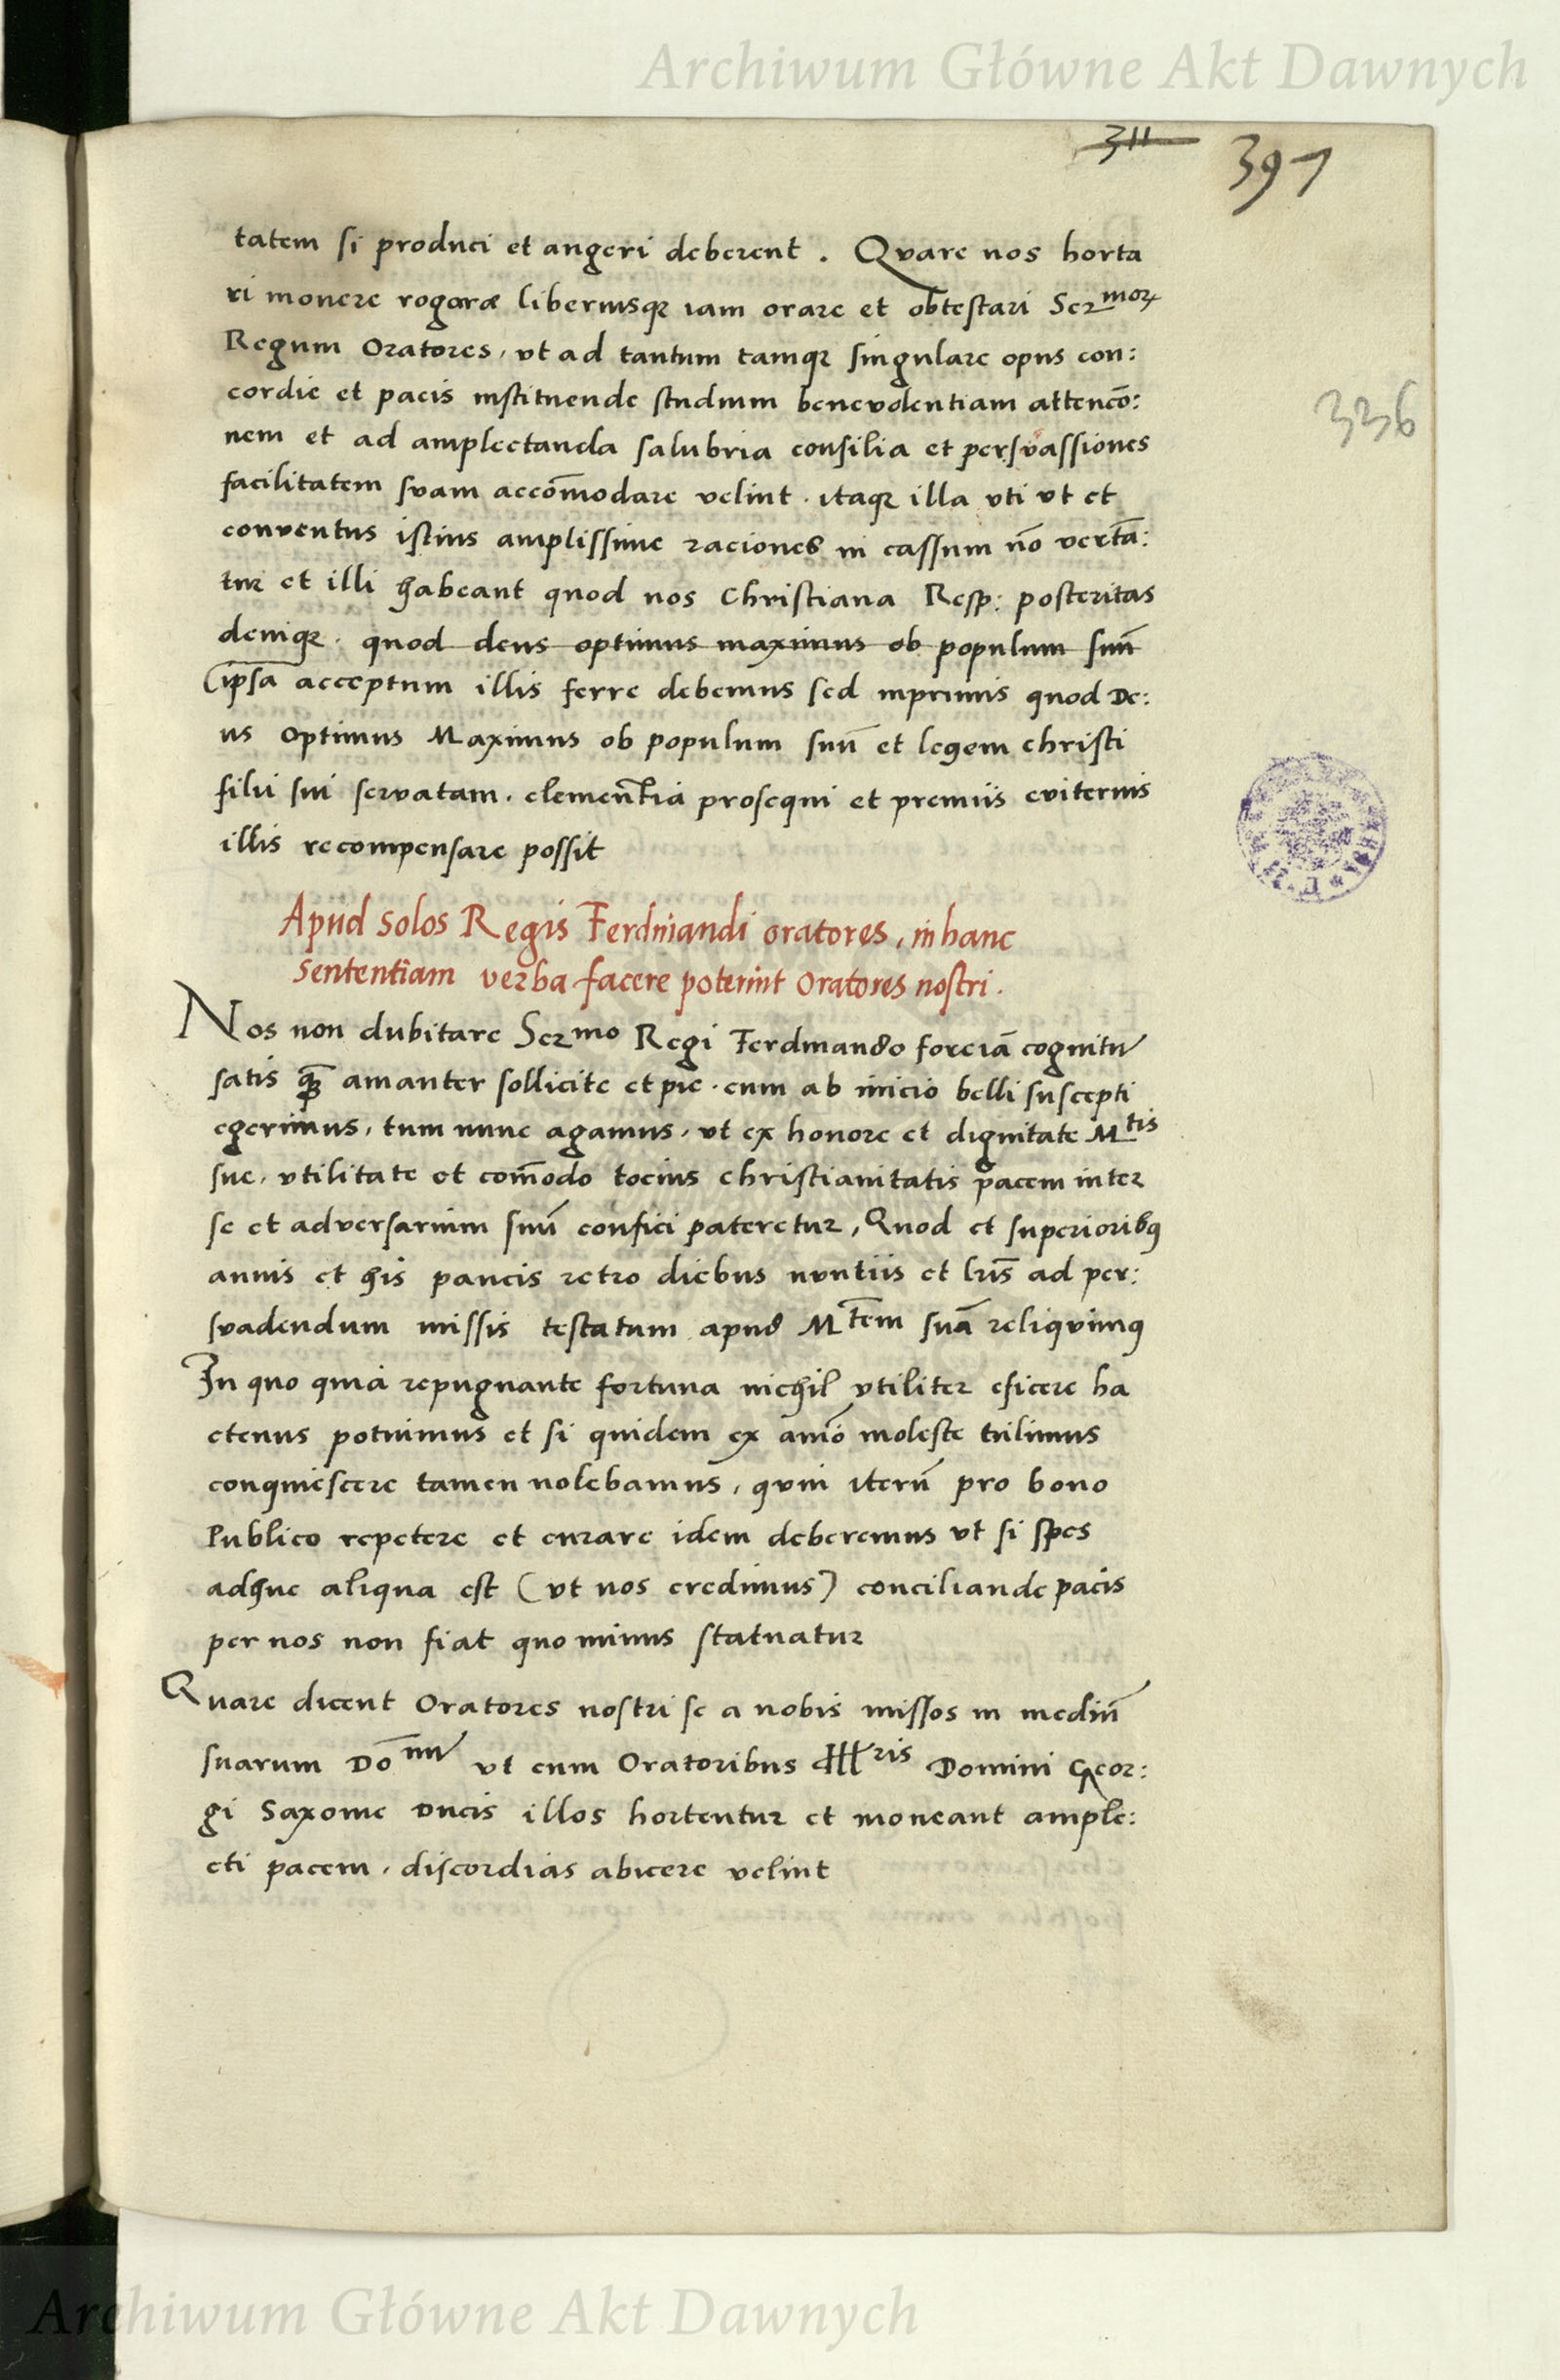 Archiwum Główne Akt Dawnych
311 397
tatem si produci et augeri deberent . Quare nos horta
ri monere rogare liberiusque iam orare et obtestari Ser^morꝝ
Regum Oratores, ut ad tantum tamque singulare opus con:
cordie et pacis instituende studium benevolentiam attencō:
336
nem et ad amplectanda salubria consilia et persvassiones
facilitatem svam accōmodare velint . itaque illa uti ut et
conventus istius amplissime raciones in cassum nō vertā:
tur et illi habeant quod nos Christiana Resp: posteritas
denique . quod deus optimus maximus ob populum suū
(ipsa acceptum illis ferre debemus sed inprimis quod De:
us Optimus Maximus ob populum suū et legem christi
filii sui servatam . clementia prosequi et premiis eviternis
illis recompensare possit
Apud solos Regis Ferdinandi oratores, in hanc
sententiam verba facere poterint Oratores nostri .
Nos non dubitare Ser^mo Regi Ferdinando fore iā cognitū
satis quā amanter sollicite et pie . cum ab inicio belli suscepti
egerimus, tum nunc agamus, ut ex honore et dignitate M^tis
sue, utilitate et com̄odo tocius christianitatis pacem inter
se et adversarium suū confici pateretur, Quod et superioribꝰ
annis et his paucis retro diebus nvntiis et lr̄is ad per:
svadendum missis testatum apud M^tem suā reliqvimꝰ
In quo quia repugnante fortuna nichil utiliter eficere ha
ctenus potuimus et si quidem ex aīo moleste tulimus
conquiescere tamen nolebamus, qvin iterū pro bono
Publico repetere et curare idem deberemus ut si spes
adhuc aliqua est (ut nos credimus) conciliande pacis
per nos non fiat quo minus statuatur
Quare dicent Oratores nostri se a nobis missos in mediū
suarum Dō^nū ut cum Oratoribus Ill^ris Domini Geor:
gi Saxonie Ducis illos hortentur et moneant ample:
cti pacem, discordias abicere velint
Archiwum Główne Akt Dawnych